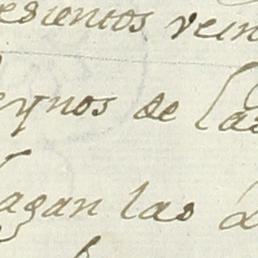 esientos vein
eynos de las
agan las